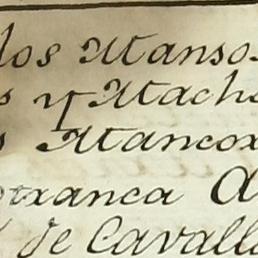 los Mansos
s y Macho
s Mancox
otxanca A
de Cavalla